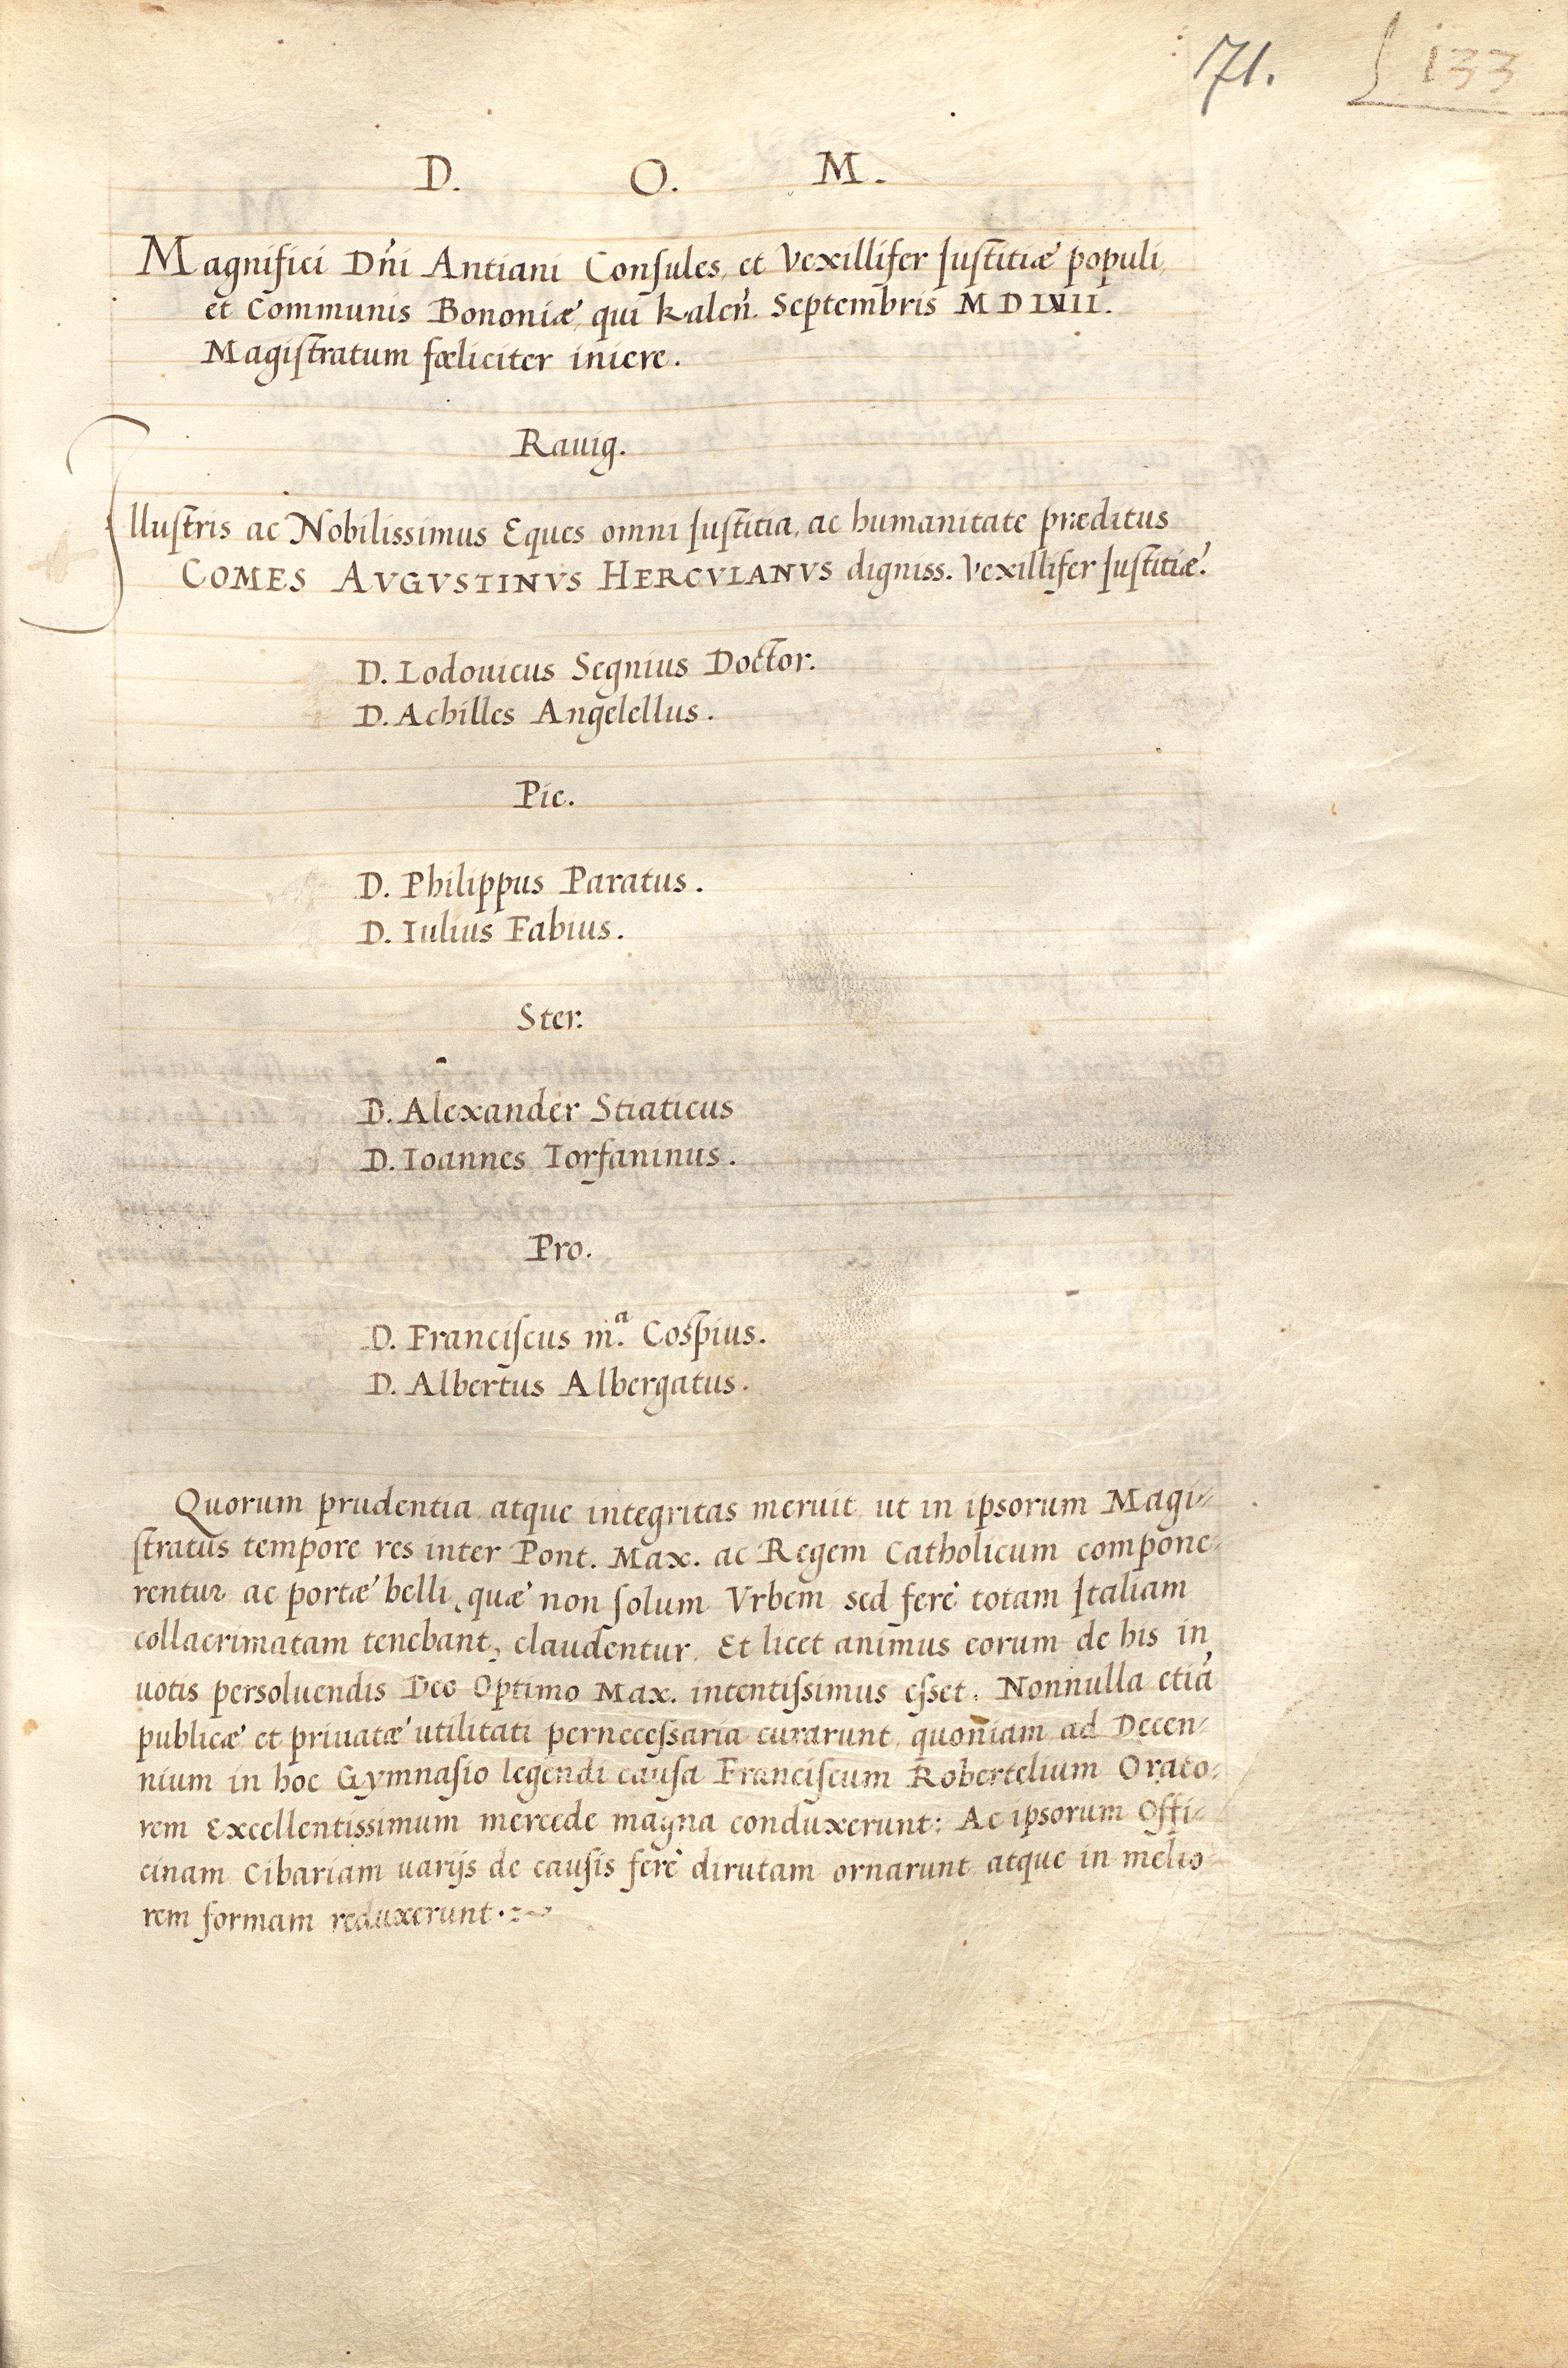 71. 133
D. O. M.
Magnifici Dñi Antiani Consules, et Vexillifer Iustitiæ populi,
et Communis Bononiæ, qui Kaleñ. Septembris MDLVII.
Magistratum fœliciter iniere.
Rauig.
Illustris ac Nobilissimus Eques omni Iustitia, ac humanitate præditus
COMES AVGVSTINVS HERCVLANVS digniss. Vexillifer Iustitiæ.
D. Lodouicus Segnius Doctor.
D. Achilles Angelellus.
Pie.
D. Philippus Paratus.
D. Iulius Fabius.
Ster.
D. Alexander Stiaticus
D. Ioannes Torfaninus.
Pro.
D. Franciscus m.ª Cospius.
D. Albertus Albergatus.
Quorum prudentia, atque integritas meruit, ut in ipsorum Magi-
stratus tempore res inter Pont. Max. ac Regem Catholicum compone-
rentur ac portæ belli, quæ non solum Vrbem, sed ferè totam Italiam
collacrimatam tenebant, claudentur. Et licet animus eorum de his in
uotis persoluendis Deo Optimo Max. intentissimus esset. Nonnulla etiã
publicæ, et priuatæ utilitati pernecessaria curarunt, quoniam ad Decen-
nium in hoc Gymnasio legendi causa Franciscum Robertelium Orato-
rem Excellentissimum mercede magna conduxerunt: Ac ipsorum Offi-
cinam Cibariam uarijs de causis ferè dirutam ornarunt, atque in melio-
rem formam reduxerunt.